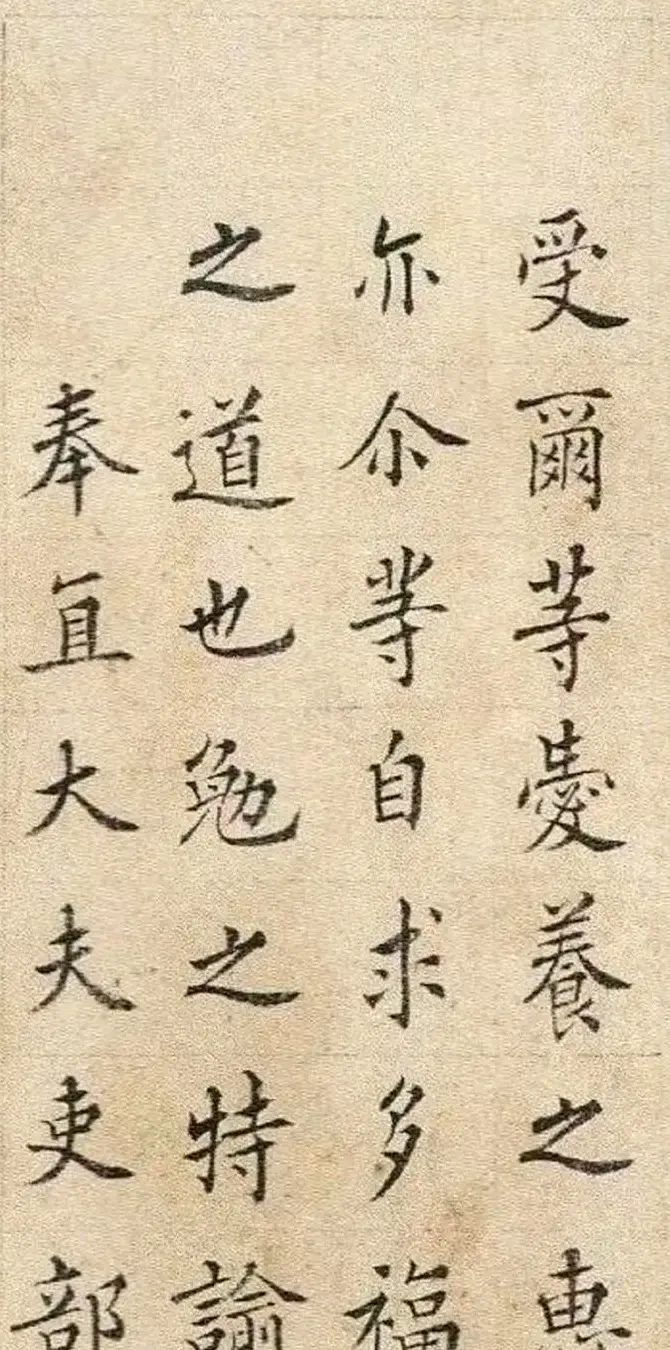 受爾等愛養之惠
亦尒等自求多福
之道也勉之特諭
奉直大夫吏部